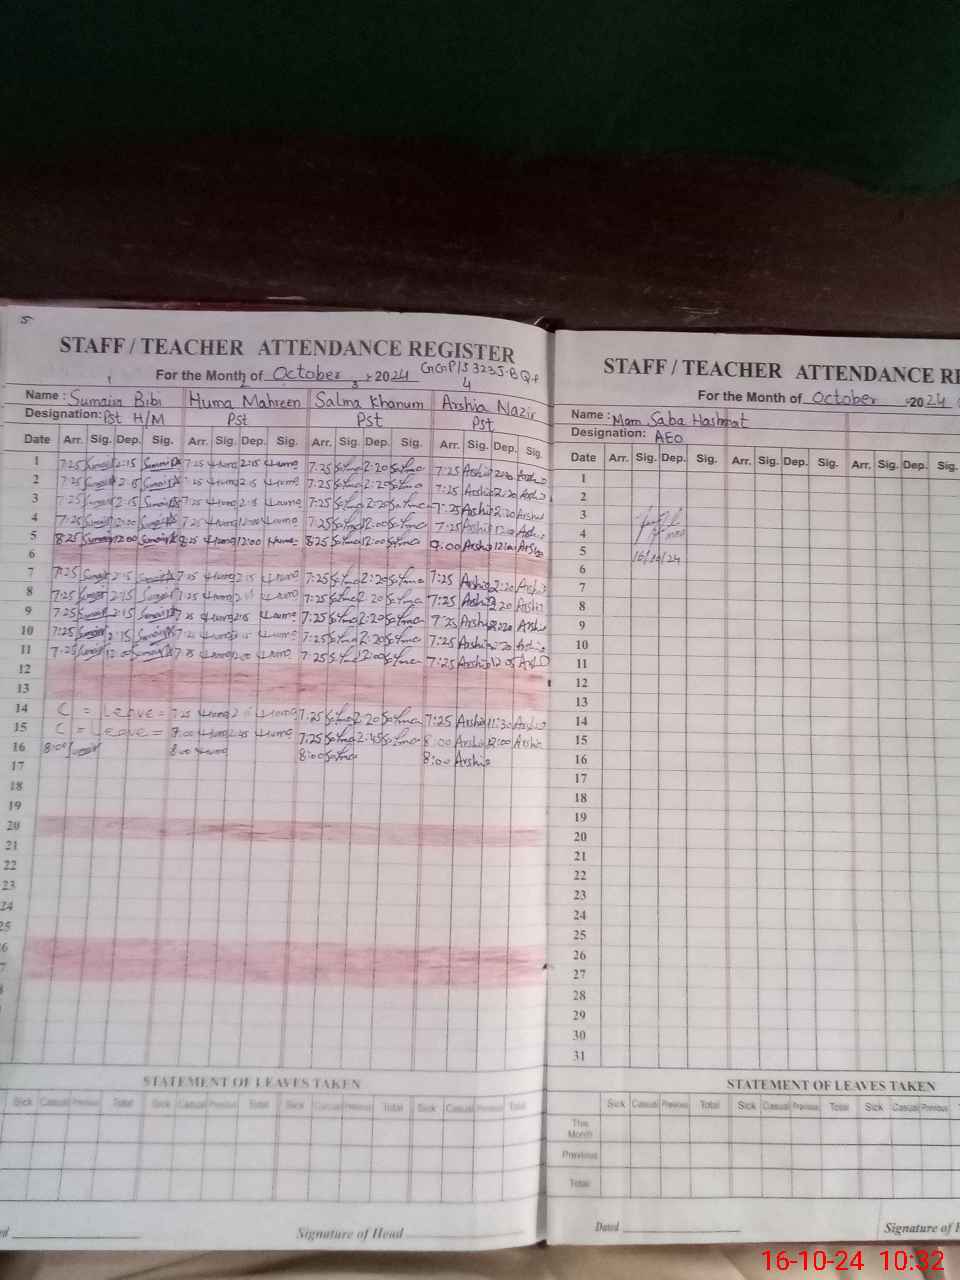 5
STAFF / TEACHER ATTENDANCE REGISTER
For the Month of October 2024
Name : Sumaira Bibi Huma Mahreen Salma Khanum Arshia Nazir
Designation: Pst H/M Pst Pst Pst
Date Arr. Sig. Dep. Sig. Arr. Sig. Dep. Sig. Arr. Sig. Dep. Sig. Arr. Sig. Dep. Sig.
1 7:25 2:15 7:25 Huma 2:15 Huma 7:25 Salma 2:20 Salma 7:25 Arshia 2:20 Arshia
2 7:25 2:15 7:25 Huma 2:15 Huma 7:25 Salma 2:20 Salma 7:25 Arshia 2:20 Arshia
3 7:25 2:15 7:25 Huma 2:15 Huma 7:25 Salma 2:20 Salma 7:25 Arshia 2:20 Arshia
4 7:25 12:00 7:25 Huma 12:00 Huma 7:25 Salma 12:00 Salma 7:25 Arshia Arshia
5 8:25 12:00 8:25 Huma 12:00 Huma 8:25 Salma 12:00 Salma 9:00 Arshia Arshia
6
7 7:25 2:15 7:25 Huma 2:15 Huma 7:25 Salma 2:20 Salma 7:25 Arshia 2:20 Arshia
8 7:25 2:15 7:25 Huma 2:15 Huma 7:25 Salma 2:20 Salma 7:25 Arshia 2:20 Arshia
9 7:25 2:15 7:25 Huma 2:15 Huma 7:25 Salma 2:20 Salma 7:25 Arshia 2:20 Arshia
10 7:25 2:15 7:25 Huma 2:15 Huma 7:25 Salma 2:20 Salma 7:25 Arshia 2:20 Arshia
11 7:25 12:00 7:25 Huma 12:00 Huma 7:25 Salma 12:00 Salma 7:25 Arshia 12:05 Arshia
12
13
14 C = Leave = 7:25 Huma Huma 7:25 Salma 2:20 Salma 7:25 Arshia 11:30 Arshia
15 C = Leave = 8:00 Huma 2:45 Huma 7:25 Salma 2:45 Salma 8:00 Arshia 12:00 Arshia
16 8:00 8:00 Huma 8:00 Salma 8:00 Arshia
17
18
19
20
21
22
23
24
25
6
7
STATEMENT OF LEAVES TAKEN
Sick Casual Previous Total Sick Casual Previous Total Sick Casual Previous Total Sick Casual Previous Total
Signature of Head
STAFF / TEACHER ATTENDANCE RE
For the Month of October 2024
Name : Mam Saba Hashmat
Designation: AEO
Date Arr. Sig. Dep. Sig. Arr. Sig. Dep. Sig. Arr. Sig. Dep. Sig.
1
2
3
4
5 16/10/24
6
7
8
9
10
11
12
13
14
15
16
17
18
19
20
21
22
23
24
25
26
27
28
29
30
31
STATEMENT OF LEAVES TAKEN
Sick Casual Previous Total Sick Casual Previous Total Sick Casual Previous
This Month
Previous
Total
Dated Signature of
16-10-24 10:32